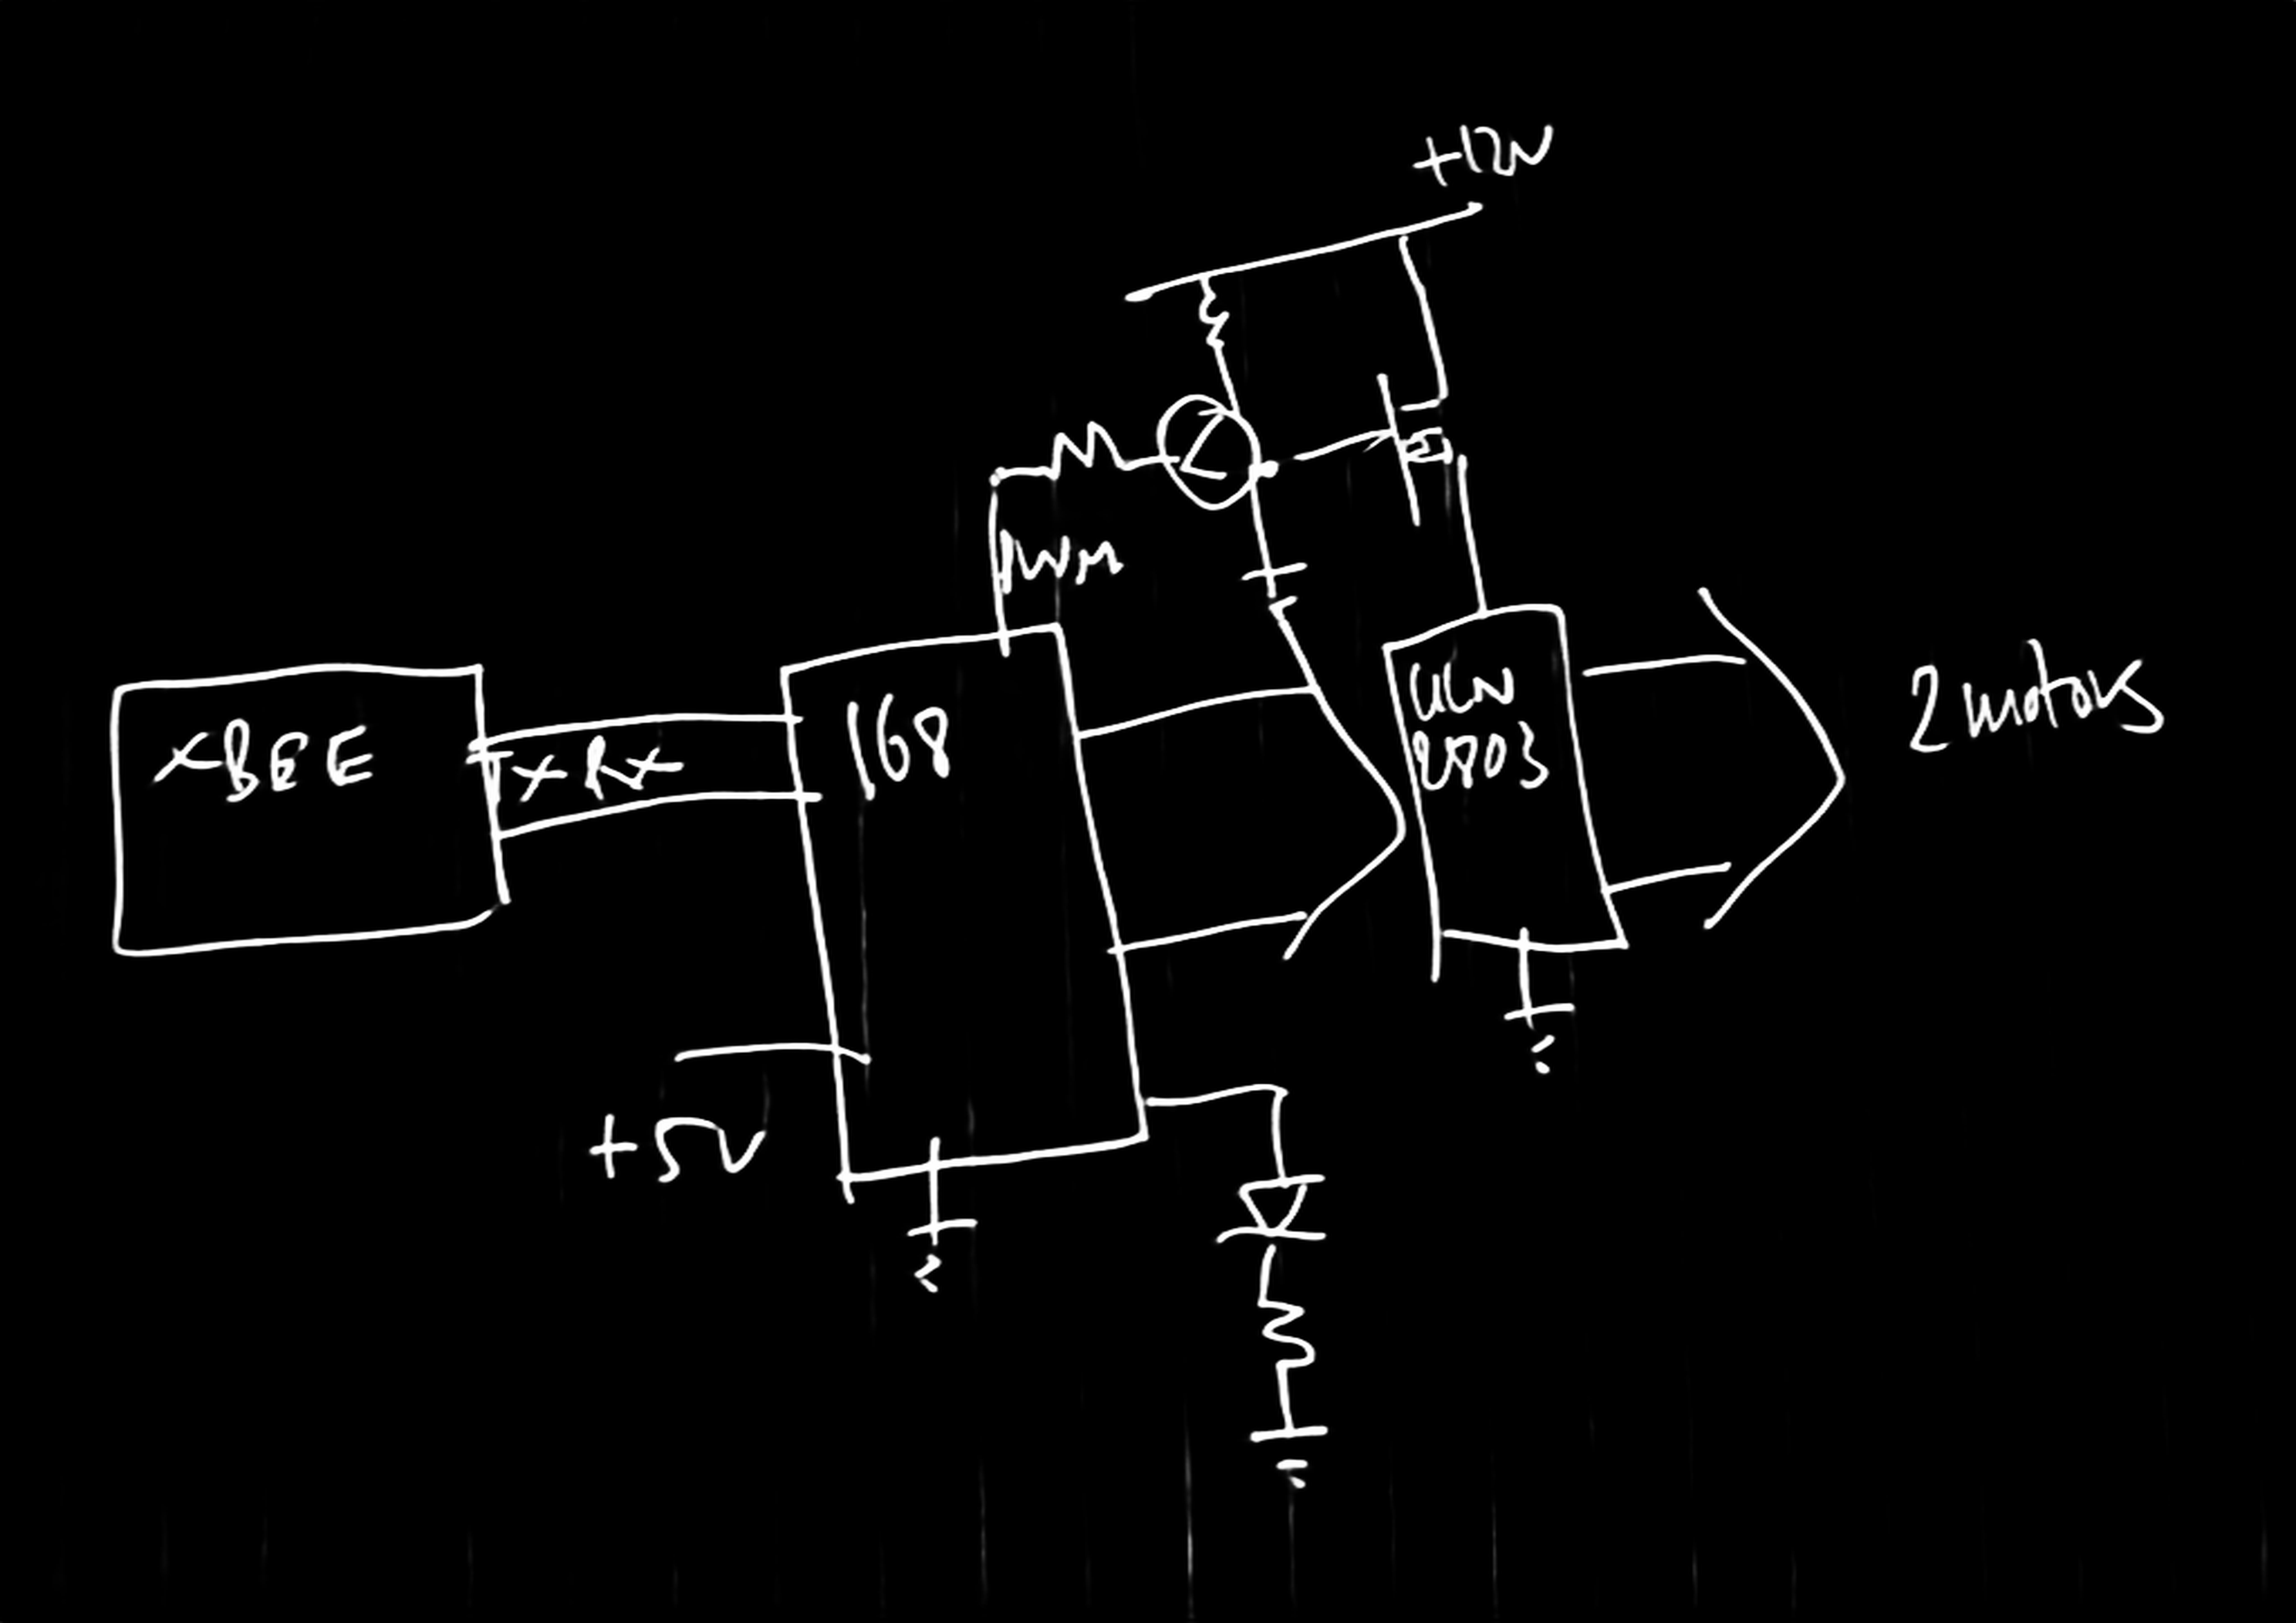 +12V
PWM
XBEE
TX RX
168
ULN
2803
2 motors
+5V